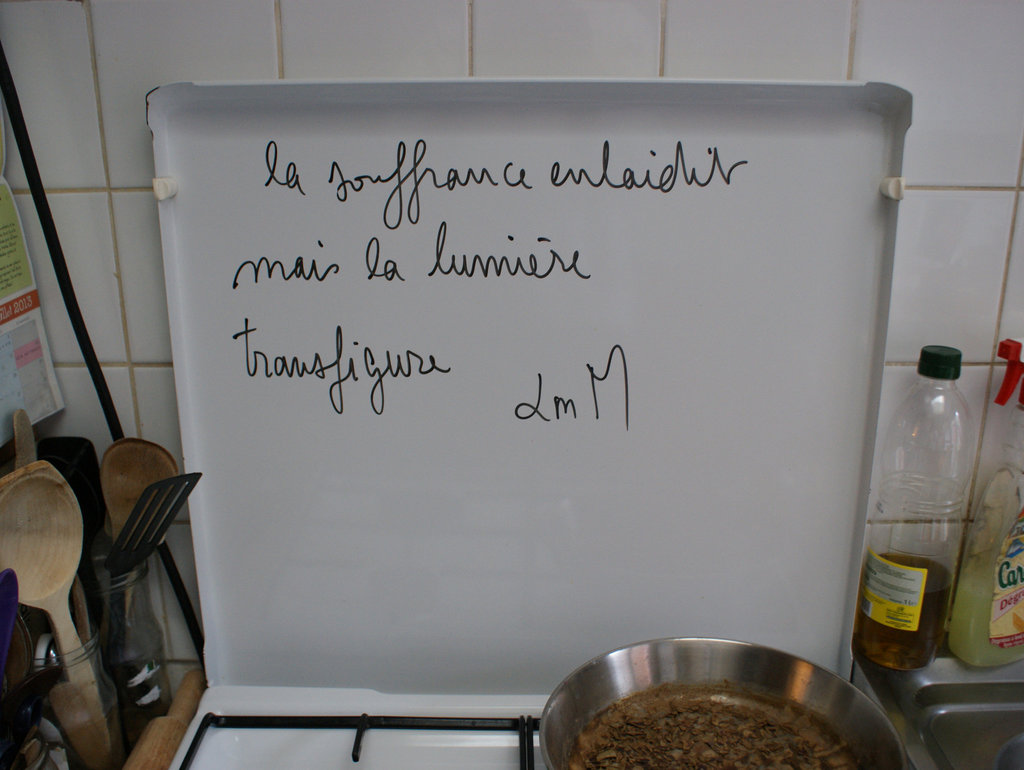 la souffrance enlaidit
mais la lumière
transfigure
LmM
2013
Car
Dégr